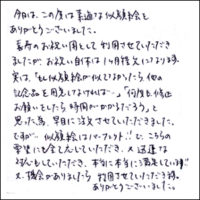 今日は、この度は素適な似顔絵を
ありがとうございました。
喜寿のお祝い用として利用させていただき
ましたが、お祝い自体は1ヶ月後になります。
実は、"もし似顔絵が似てなかったら他の
記念品を用意しなければ…"、"何度も修正
お願いしたら時間がかかるだろう"と
思った為、早目に注文させていただきました。
ですが…似顔絵はパーフェクト!!で、こちらの
要望にも全て応えていただき、又迅速な
対応もしていただき、本当に本当に感謝しています!!
又、機会がありましたら利用させていただきます。
ありがとうございました。